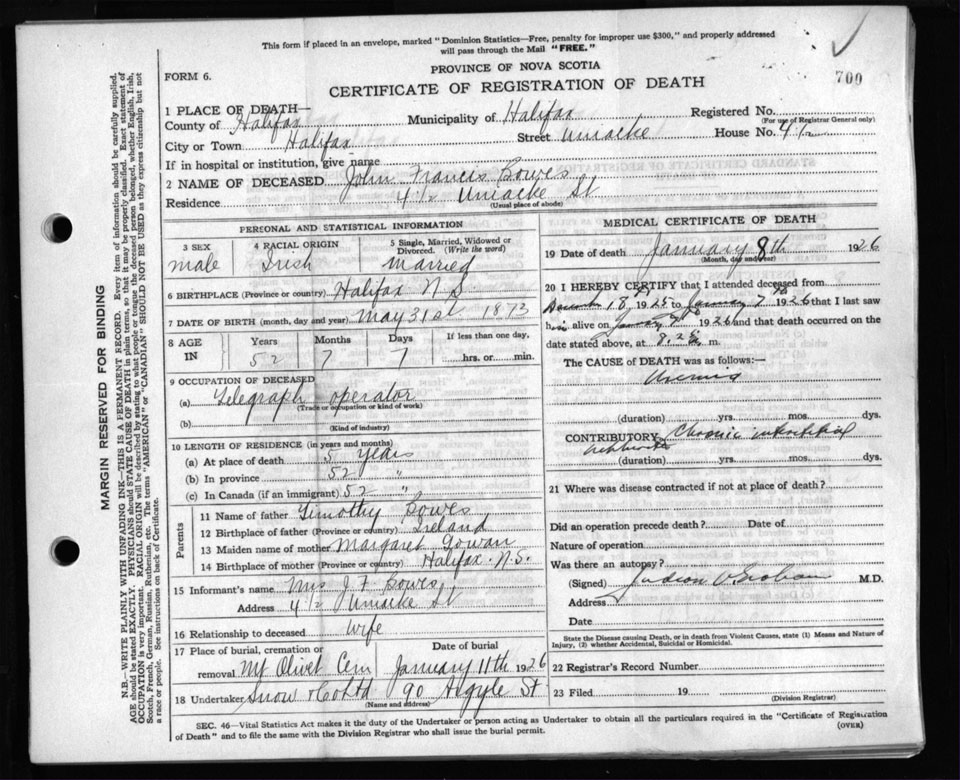 This form if placed in an envelope, marked "Dominion Statistics—Free, penalty for improper use $300," and properly addressed
will pass through the Mail "FREE."
700
PROVINCE OF NOVA SCOTIA
FORM 6.
CERTIFICATE OF REGISTRATION OF DEATH
1 PLACE OF DEATH—
County of Halifax Municipality of Halifax Registered No.
(For use of Registrar General only)
City or Town Halifax Street Uniacke House No. 4½
If in hospital or institution, give name
2 NAME OF DECEASED John Francis Bowes
Residence 4½ Uniacke St
(Usual place of abode)
PERSONAL AND STATISTICAL INFORMATION
3 SEX 4 RACIAL ORIGIN 5 Single, Married, Widowed or Divorced. (Write the word)
male Irish Married
6 BIRTHPLACE (Province or country) Halifax N S
7 DATE OF BIRTH (month, day and year) May 31st 1873
8 AGE IN Years Months Days If less than one day,
52 7 7 hrs. or min.
9 OCCUPATION OF DECEASED
(a) Telegraph operator
(Trade or occupation or kind of work)
(b)
(Kind of industry)
10 LENGTH OF RESIDENCE (in years and months)
(a) At place of death 5 years
(b) In province 52 "
(c) In Canada (if an immigrant) 52 "
Parents
11 Name of father Timothy Bowes
12 Birthplace of father (Province or country) Ireland
13 Maiden name of mother Margaret Gowan
14 Birthplace of mother (Province or country) Halifax N.S.
15 Informant's name Mrs J. F Bowes
Address 4½ Uniacke St
16 Relationship to deceased wife
17 Place of burial, cremation or removal Date of burial
Mt Olivet Cem January 11th 1926
18 Undertaker Snow & Co Ltd 90 Argyle St
(Name and address)
MEDICAL CERTIFICATE OF DEATH
19 Date of death January 8th 1926
(Month, day and year)
20 I HEREBY CERTIFY that I attended deceased from
18 1925 to January 7th 1926 that I last saw
him alive on January 7th 1926 and that death occurred on
date stated above, at 8.2 m.
The CAUSE of DEATH was as follows:—
Uremia
(duration) yrs. mos. dys.
CONTRIBUTORY Chronic interstitial
nephritis
(duration) yrs. mos. dys.
21 Where was disease contracted if not at place of death?
Did an operation precede death? Date of
Nature of operation
Was there an autopsy?
(Signed) Judson V Graham M.D.
Address
Date
State the Disease causing Death, or in death from Violent Causes, state (1) Means and Nature of
Injury, (2) whether Accidental, Suicidal or Homicidal.
22 Registrar's Record Number
23 Filed 19
(Division Registrar)
SEC. 46—Vital Statistics Act makes it the duty of the Undertaker or person acting as Undertaker to obtain all the particulars required in the "Certificate of Registration
of Death" and to file the same with the Division Registrar who shall issue the burial permit.
(OVER)
MARGIN RESERVED FOR BINDING
N.B.—WRITE PLAINLY WITH UNFADING INK—THIS IS A PERMANENT RECORD. Every item of information should be carefully supplied.
AGE should be stated EXACTLY. PHYSICIANS should STATE CAUSE OF DEATH in plain terms, so that it may be properly classified. Exact statement of
OCCUPATION is very important. RACIAL ORIGIN will be described by stating to what people or tongue the deceased person belonged, whether English, Irish,
Scotch, French, German, Russian, Ruthenian, etc. The terms "AMERICAN" or "CANADIAN" SHOULD NOT BE USED as they express citizenship but not
a race or people. See instructions on back of Certificate.